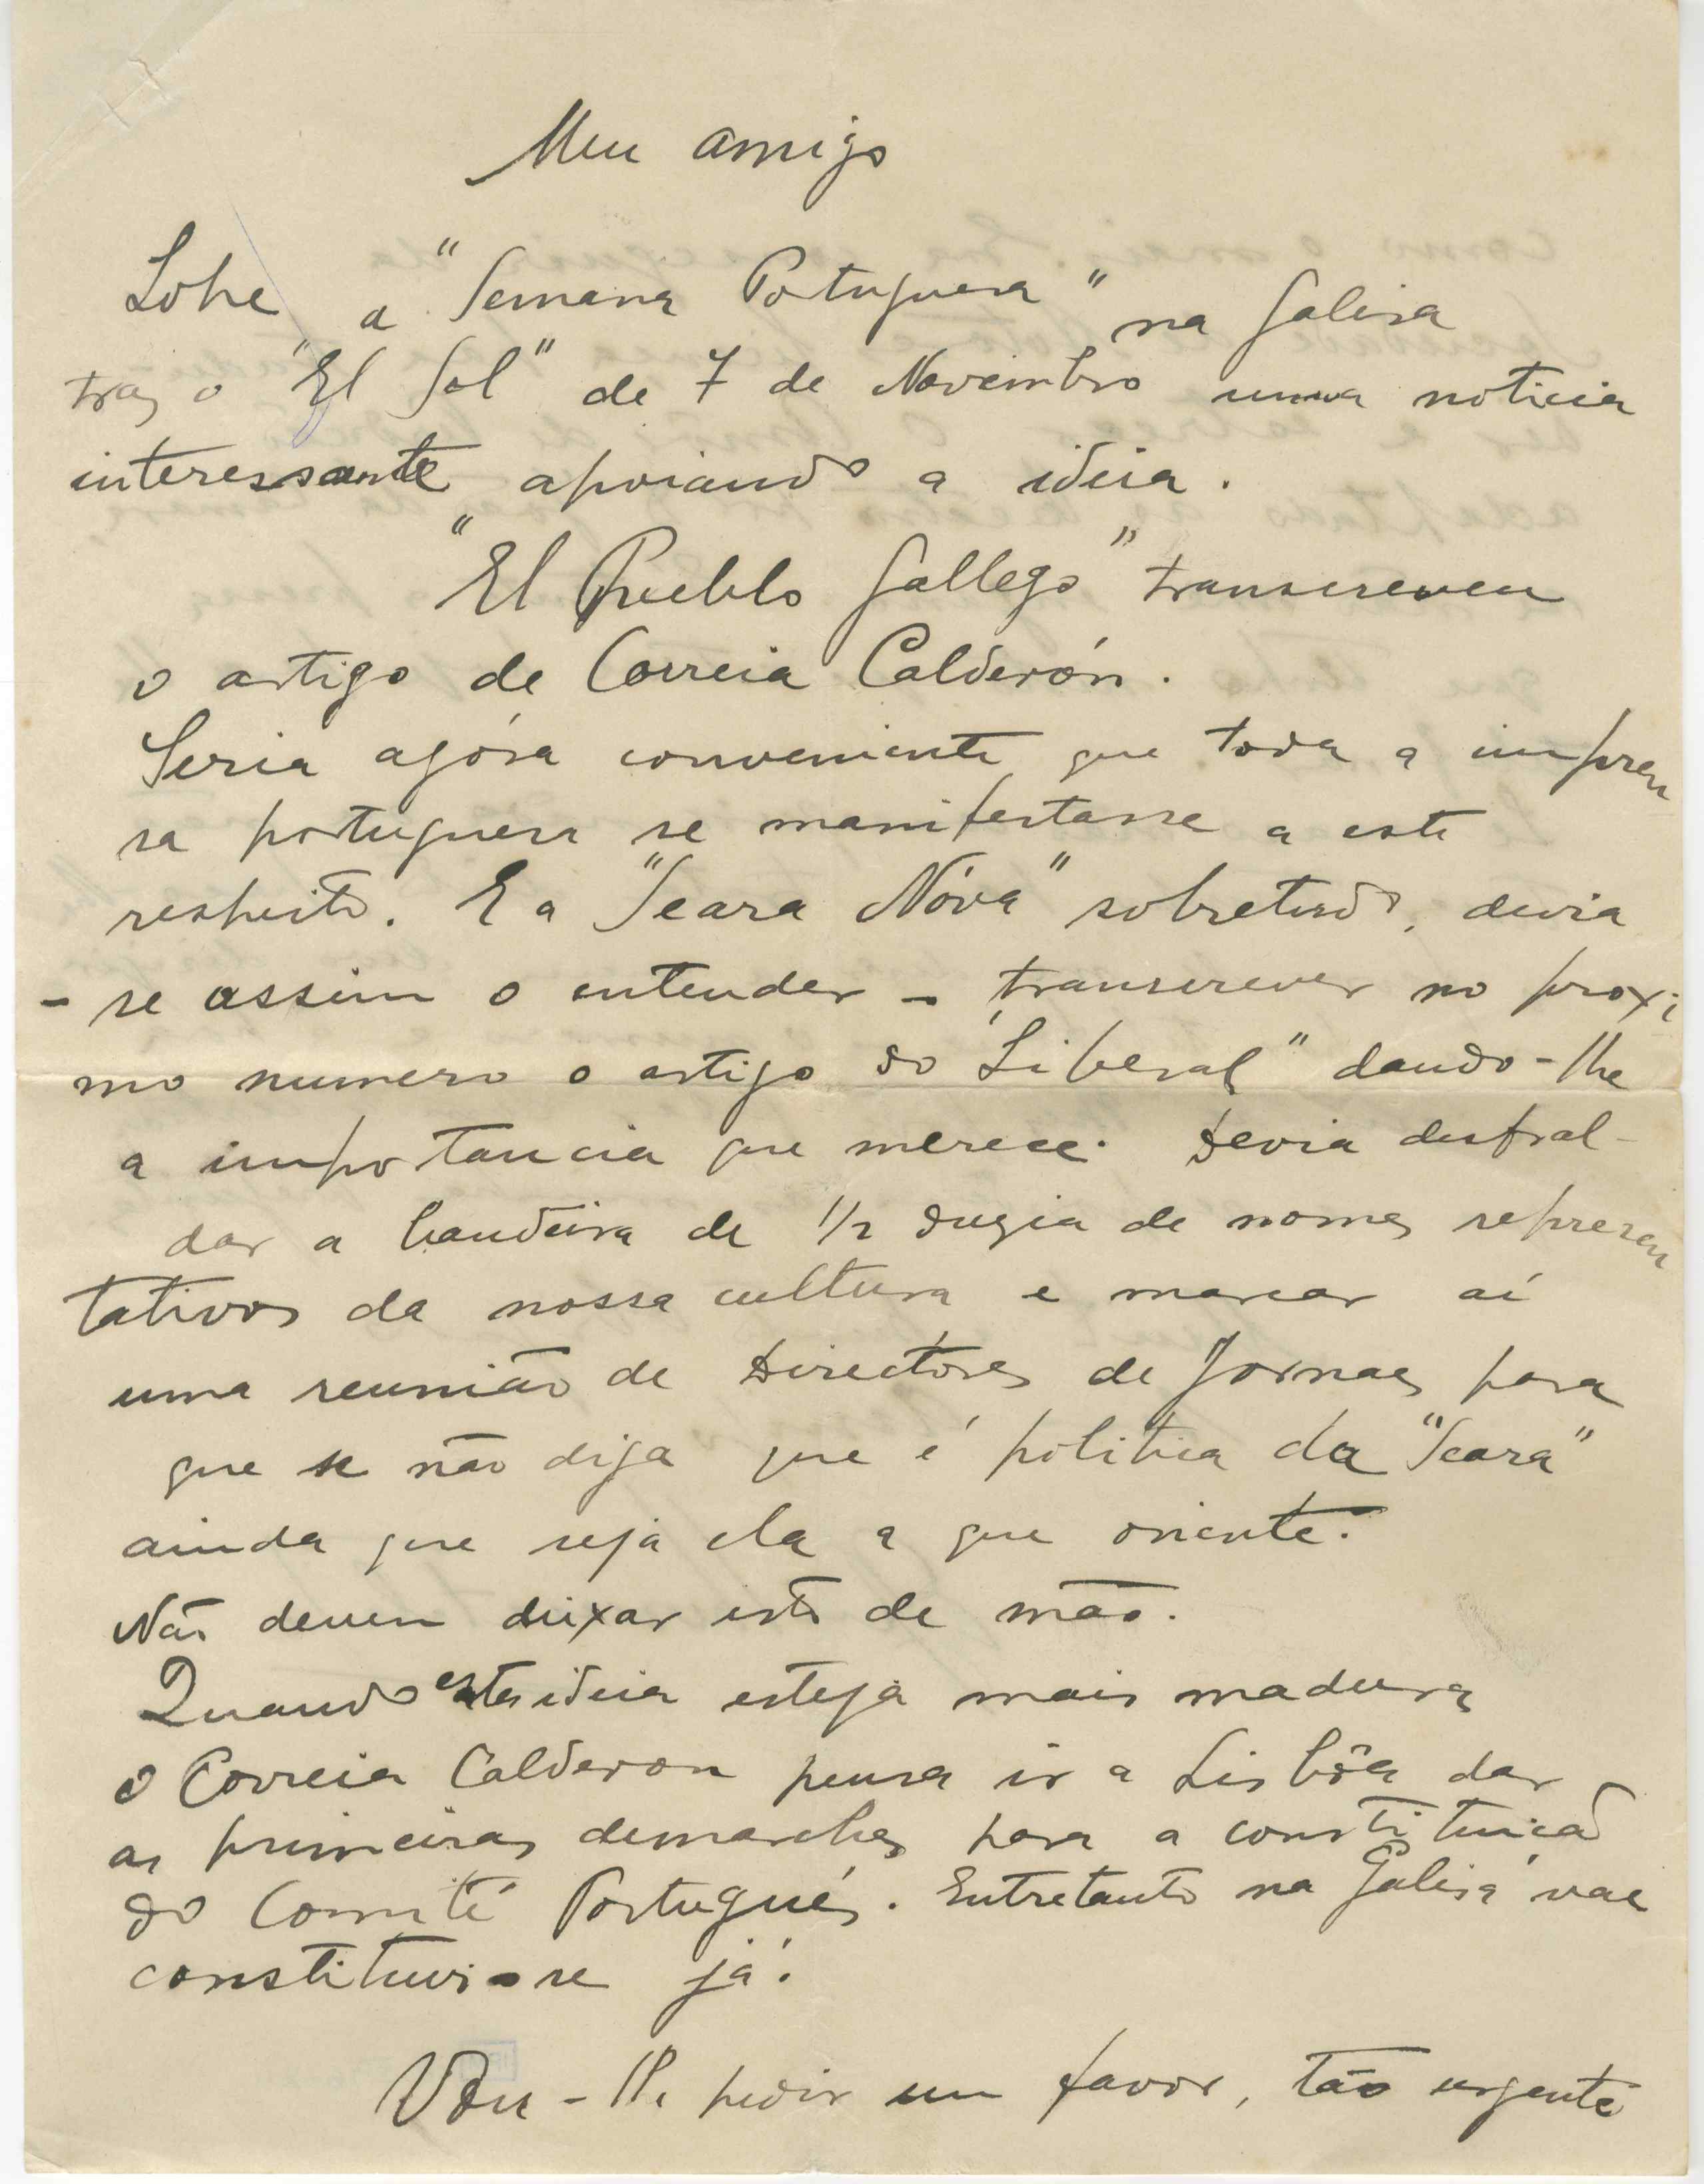 Meu amigo
Sobre a "Semana Portuguesa" na Galisa
traz o "El Sol" de 7 de Novembro uma noticia
interessante apoiando a ideia.
"El Pueblo Gallego" transcreveu
o artigo de Correia Calderón.
Seria agóra conveniente que toda a impren
sa portuguesa se manifestasse a este
respeito. E a "Seara Nóva" sobretudo, devia
- se assim o entender - transcrever no proxi
mo numero o artigo do "Liberal" dando-lhe
a importancia que merece. Devia desfral-
dar a bandeira de 1/2 duzia de nomes represen
tativos da nossa cultura e marcar aí
uma reunião de Directores de Jornaes para
que se não diga que é politica da "Seara"
ainda que seja ela a que oriente.
Não devem deixar isto de mão.
Quando esta ideia esteja mais madura
o Correia Calderon pensa ir a Lisbôa dar
as primeiras demarches para a constituicão
do Comité Portugués. Entretanto na Galisa vae
constituir-se já.
Vou-lhe pedir um favor, tão urgente